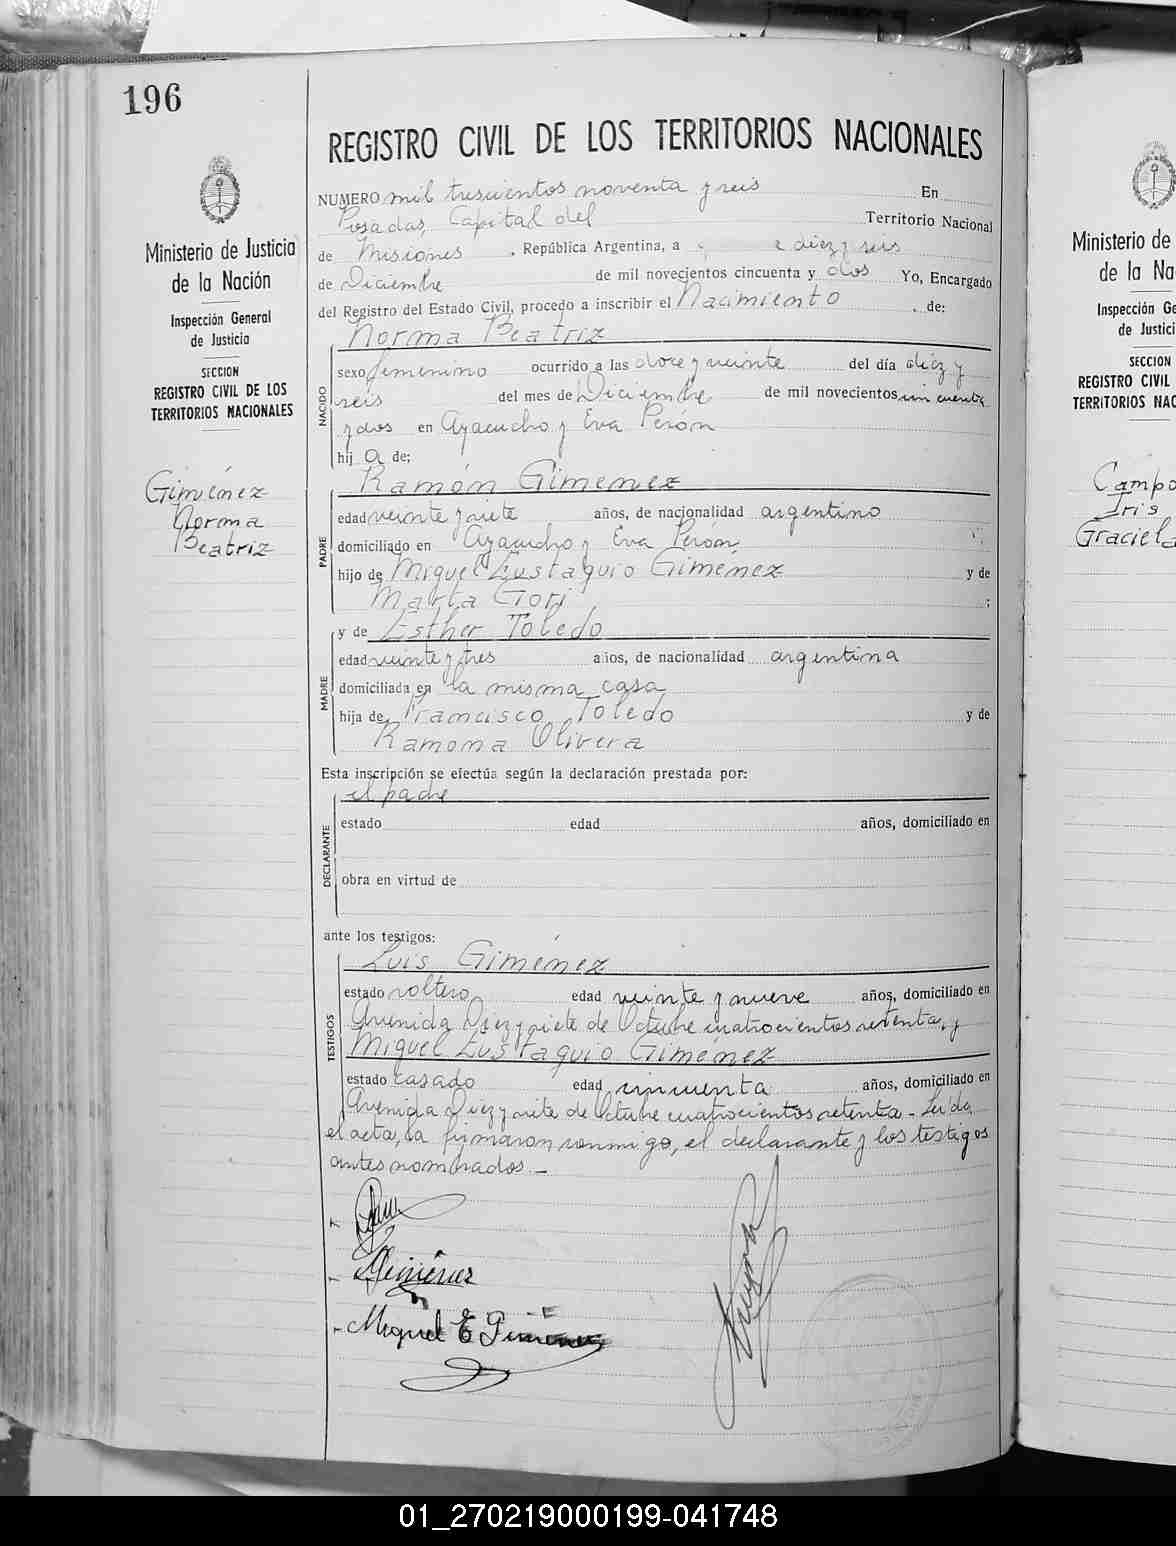 196
REGISTRO CIVIL DE LOS TERRITORIOS NACIONALES
Ministerio de Justicia
de la Nación
Inspección General
de Justicia
SECCION
REGISTRO CIVIL DE LOS
TERRITORIOS NACIONALES
Giménez
Norma
Beatriz
NUMERO mil trescientos noventa y seis En
Posadas, Capital del Territorio Nacional
de Misiones , República Argentina, a diez y seis
de Diciembre de mil novecientos cincuenta y dos Yo, Encargado
del Registro del Estado Civil, procedo a inscribir el Nacimiento , de:
Norma Beatriz
NACIDO
sexo femenino ocurrido a las doce y veinte del día diez y
seis del mes de Diciembre de mil novecientos cincuenta
y dos en Ayacucho y Eva Perón
hij a de;
Ramón Gimenez
PADRE
edad veinte y siete años, de nacionalidad argentino
domiciliado en Ayacucho y Eva Perón
hijo de Miguel Eustaquio Giménez y de
Marta Gori ;
y de Esther Toledo
MADRE
edad veinte y tres años, de nacionalidad argentina
domiciliada en la misma casa
hija de Francisco Toledo y de
Ramona Olivera
Esta inscripción se efectúa según la declaración prestada por:
el padre
DECLARANTE
estado edad años, domiciliado en
obra en virtud de
ante los testigos:
Luis Giménez
TESTIGOS
estado soltero edad veinte y nueve años, domiciliado en
Avenida Diez y siete de Octubre cuatrocientos setenta, y
Miguel Eustaquio Giménez
estado casado edad cincuenta años, domiciliado en
Avenida Diez y siete de Octubre cuatrocientos setenta - Leída
el acta, la firmaron conmigo, el declarante y los testigos
antes nombrados. -
Giménez
Miguel E Giménez
Ministerio de
de la Na
Inspección Ge
de Justici
SECCION
REGISTRO CIVIL
TERRITORIOS NAC
Campo
Iris
Graciela
01_270219000199-041748